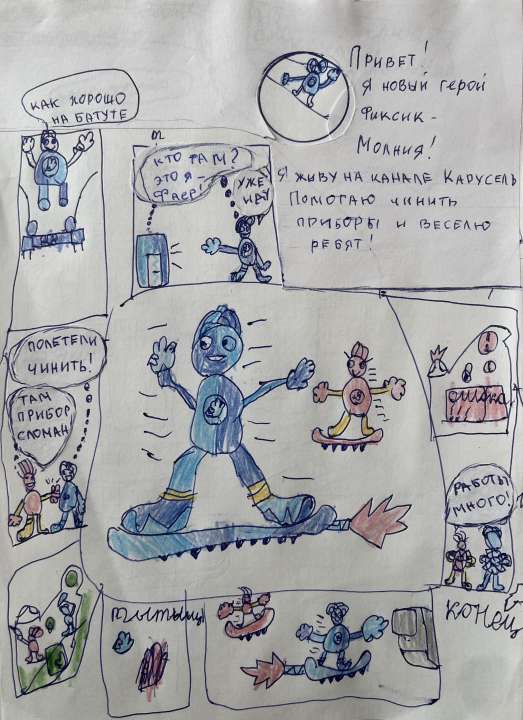 Привет!
Я новый герой
Фиксик -
Молния!
Я живу на канале Карусель
Помогаю чинить
приборы и веселю
ребят!
как хорошо
на батуте
кто там?
это я -
Фаер!
уже
иду
полетели
чинить!
там
прибор
сломан
работы
много!
конец